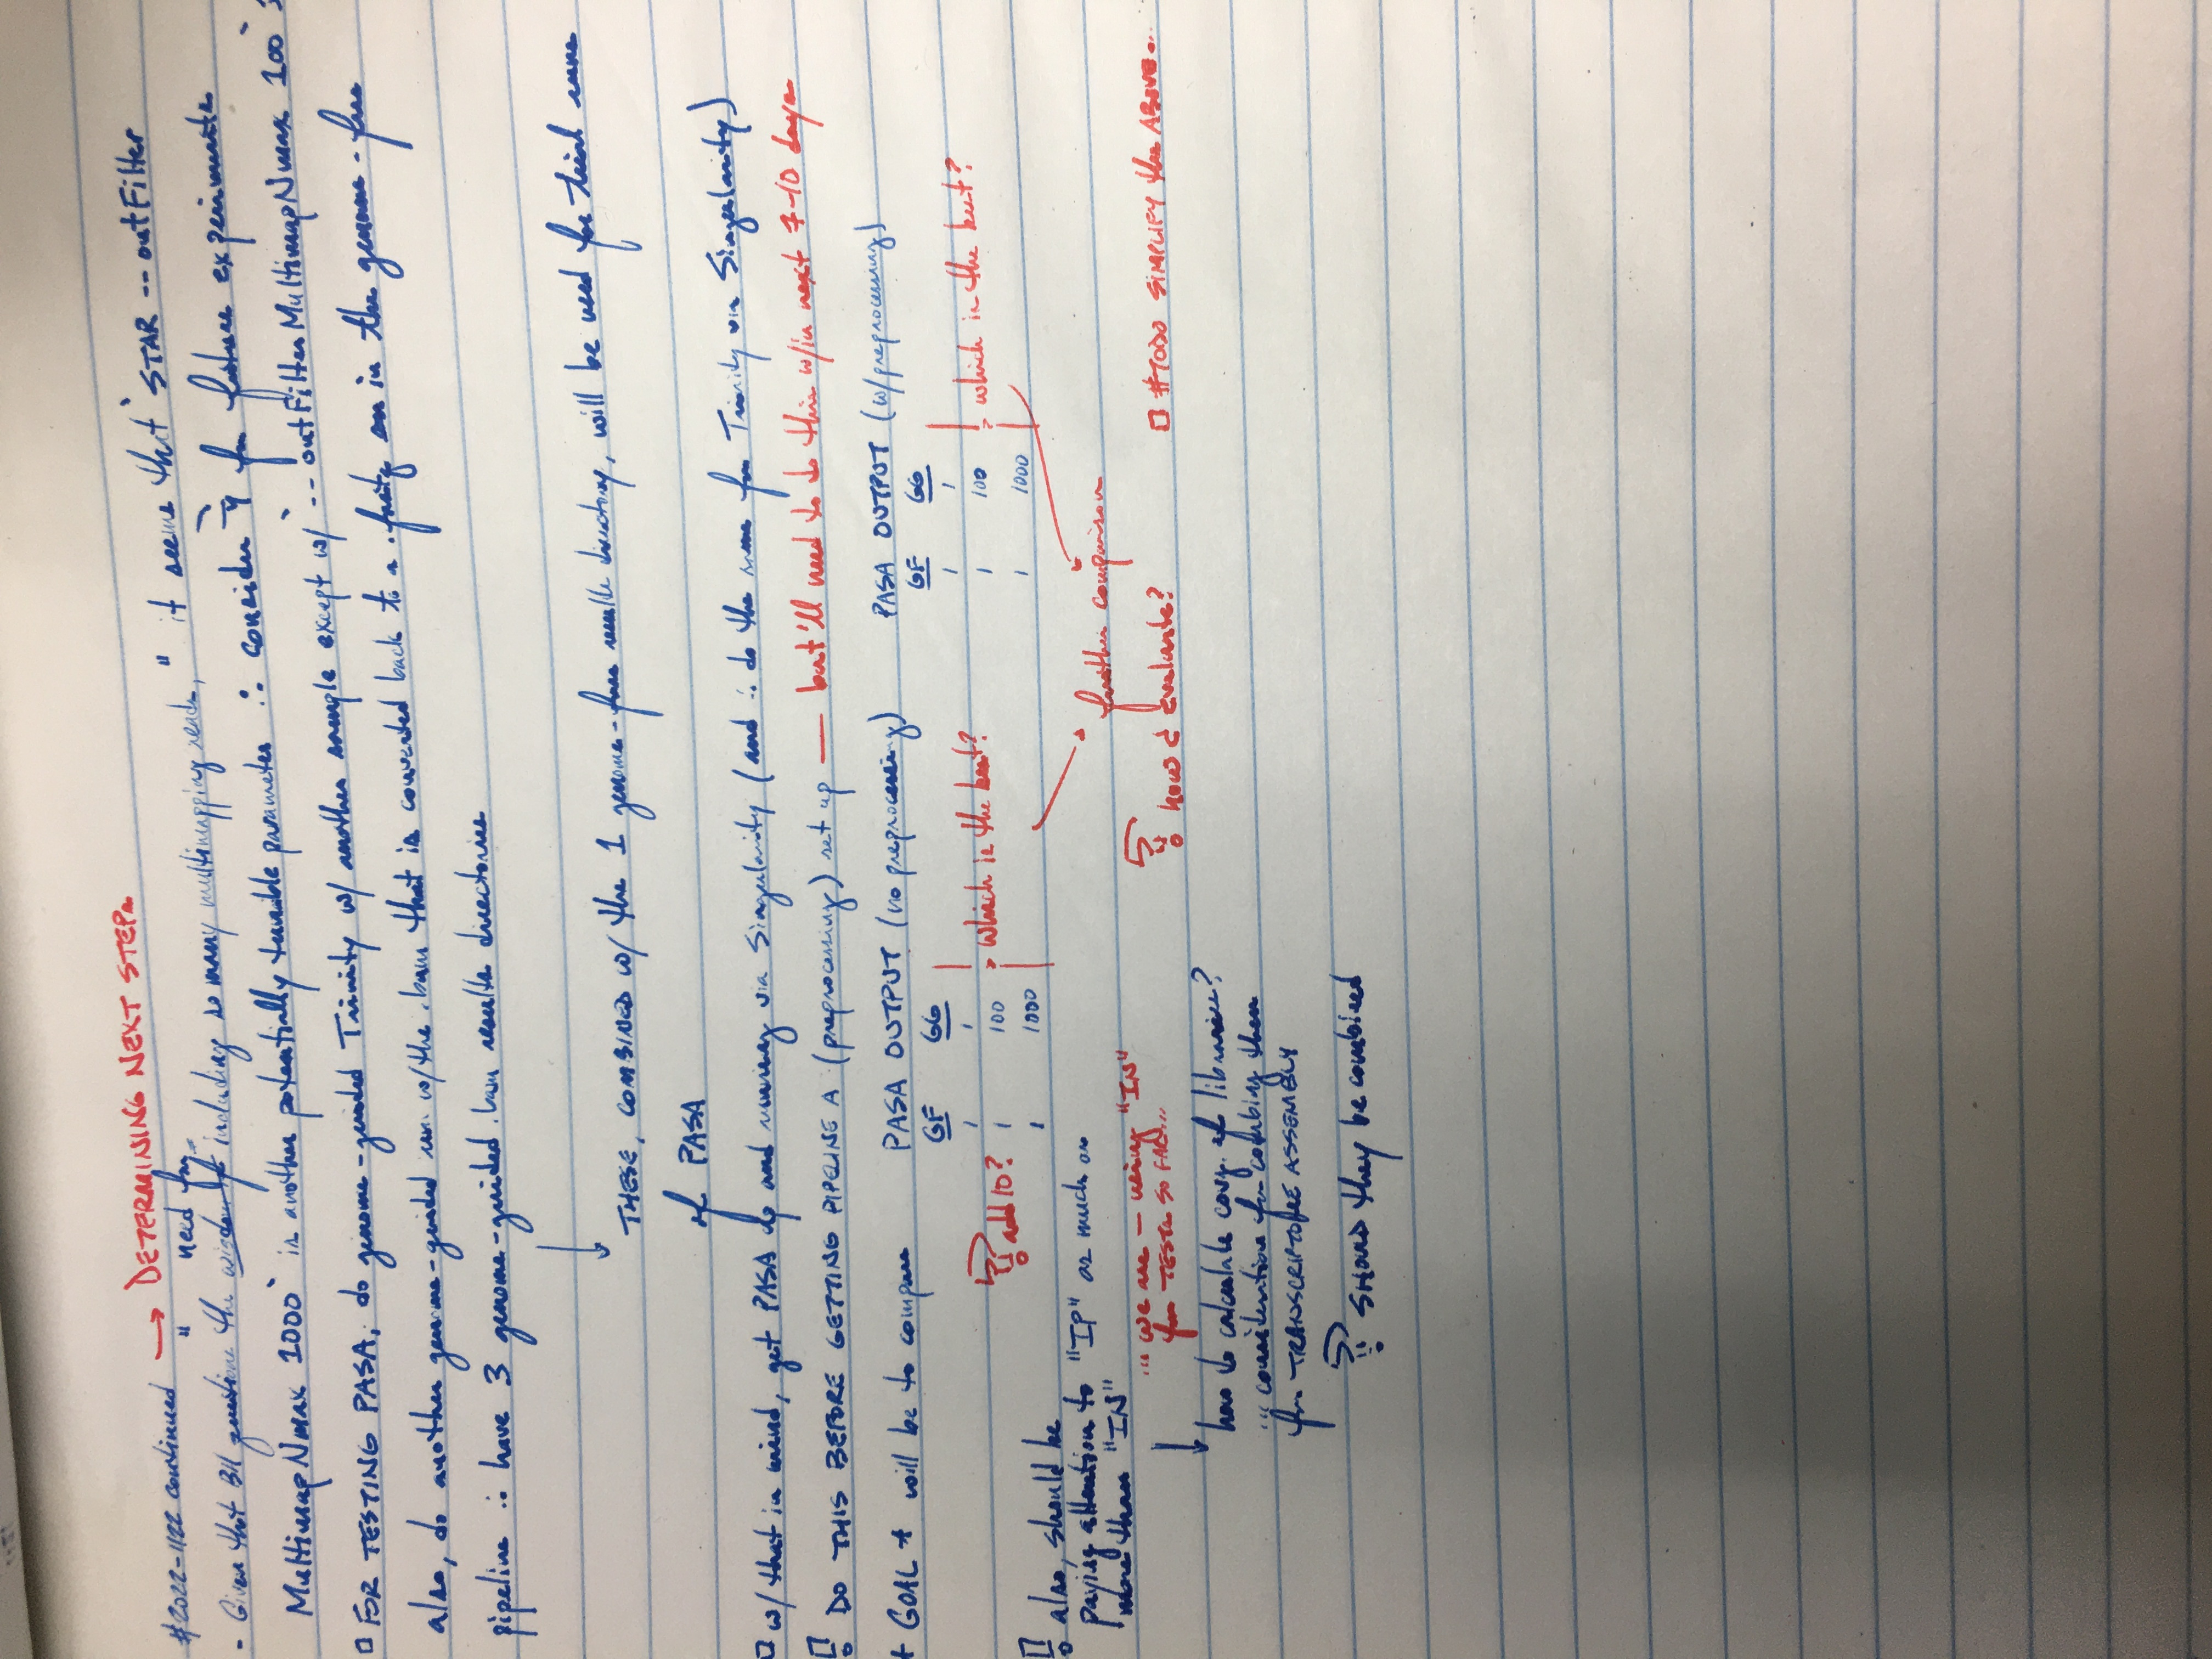 #2022-1122 continued → DETERMINING NEXT STEPs
" need for
- Given that Bill questions the wisdom of including so many multimapping reads," it seems that `STAR --outFilter
MultimapNmax 1000` is another potentially tunable parameter ∴ consider it for future experiments
□ FOR TESTING PASA, do genome-guided Trinity w/ another sample except w/ `--outFilterMultimapNmax 100`;
also, do another genome-guided run w/ the .bam that is converted back to a .fastq as in the genome-free
pipeline ∴ have 3 genome-guided .bam results directories
↓
THESE, COMBINED w/ the 1 genome-free results directory, will be used for trial runs
of PASA
□ w/ that in mind, get PASA up and running via Singularity (and ∴ do the same for Trinity via Singularity)
DO THIS BEFORE GETTING PIPELINE A (preprocessing) set up — but'll need to do this w/in next 7-10 days
* GOAL * will be to compare PASA OUTPUT (no preprocessing) PASA OUTPUT (w/preprocessing)
GF GG GF GG
1 1 1 1
?! add 10? 1 100 which is the best? 1 100 which is the best?
1 1000 1 1000
also, should be
paying attention to "IP" as much as
more than "IN"
further comparison
... we are – using "IN"
for TESTs SO FAR...
how 2 evaluate? □ #TODO SIMPLIFY the ABOVE...
↓
how to calculate covg. of libraries?
... consideration for combing them
for TRANSCRIPTOME ASSEMBLY
SHOULD they be combined